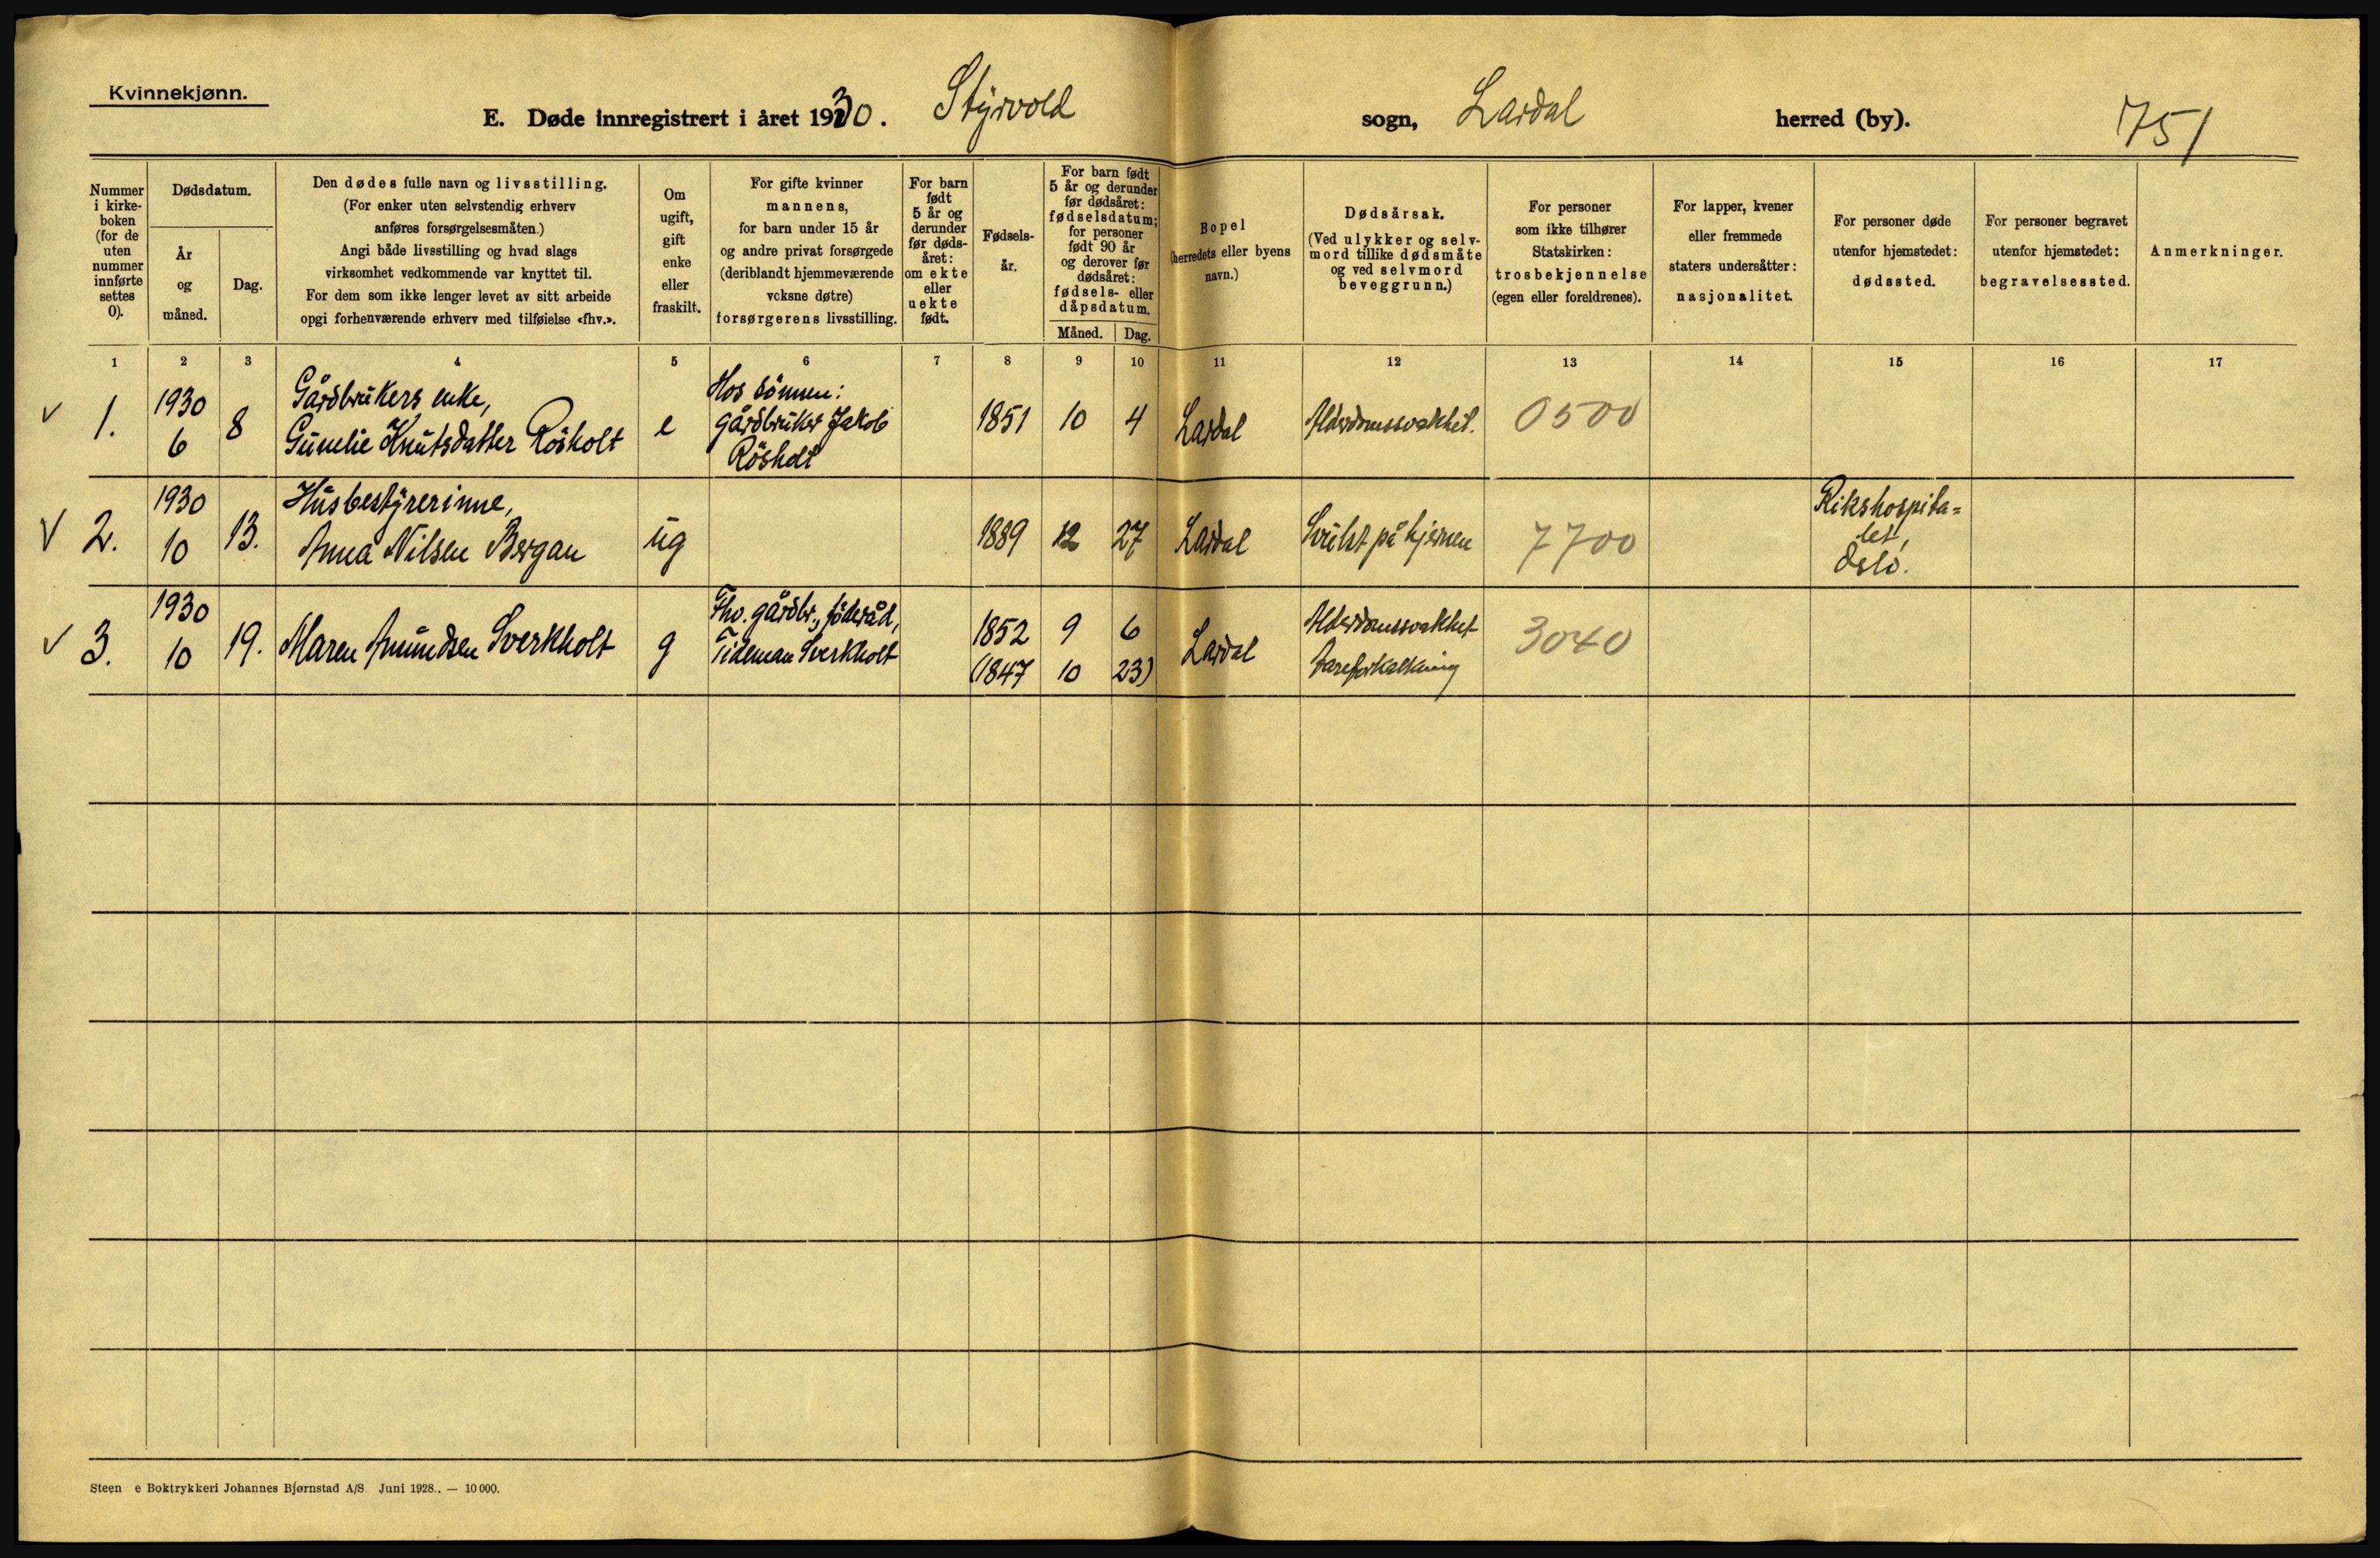 Kvinnekjønn.
E. Døde innregistrert i året 1930. Styrvold sogn, Lardal herred (by). 751
Nummer i kirke-boken (for de uten nummer innførte settes 0).
Dødsdatum.
År og måned.
Dag.
Den dødes fulle navn og livsstilling.
(For enker uten selvstendig erhverv
anføres forsørgelsesmåten.)
Angi både livsstilling og hvad slags
virksomhet vedkommende var knyttet til.
For dem som ikke lenger levet av sitt arbeide
opgi forhenværende erhverv med tilføielse «fhv.».
Om ugift, gift enke eller fraskilt.
For gifte kvinner
mannens,
for barn under 15 år
og andre privat forsørgede
(deriblandt hjemmeværende
voksne døtre)
forsørgerens livsstilling.
For barn født 5 år og derunder før døds-året: om ekte eller uekte født.
Fødsels-år.
For barn født
5 år og derunder
før dødsåret:
fødselsdatum;
for personer
født 90 år
og derover før
dødsåret:
fødsels- eller
dåpsdatum.
Måned. Dag.
Bopel
(herredets eller byens
navn.)
Dødsårsak.
(Ved ulykker og selv-
mord tillike dødsmåte
og ved selvmord
beveggrunn.)
For personer
som ikke tilhører
Statskirken:
trosbekjennelse
(egen eller foreldrenes).
For lapper, kvener
eller fremmede
staters undersåtter:
nasjonalitet.
For personer døde
utenfor hjemstedet:
dødssted.
For personer begravet
utenfor hjemstedet:
begravelsessted.
Anmerkninger.
1 2 3 4 5 6 7 8 9 10 11 12 13 14 15 16 17
v 1. 1930 6 8
Gårdbrukers enke,
Gunelie Knutsdatter Rösholt
e
Hos sönnen:
gårdbruker Jakob
Rösholt
1851 10 4 Lardal Alderdomssvakhet. 0500
v 2. 1930 10 13.
Husbestyrerinne,
Anna Nilsen Bergan
ug 1889 12 27 Lardal Svulst på hjernen 7700
Rikshospita=
let,
Oslo.
v 3. 1930 10 19. Maren Amundsen Sverkholt g
Fhv. gårdbr., föderåd,
Tideman Sverkholt
1852 9 6
(1847 10 23)
Lardal
Alderdomssvakhet
Åreforkalkning
3040
Steen e Boktrykkeri Johannes Bjørnstad A/S. Juni 1928.. — 10 000.